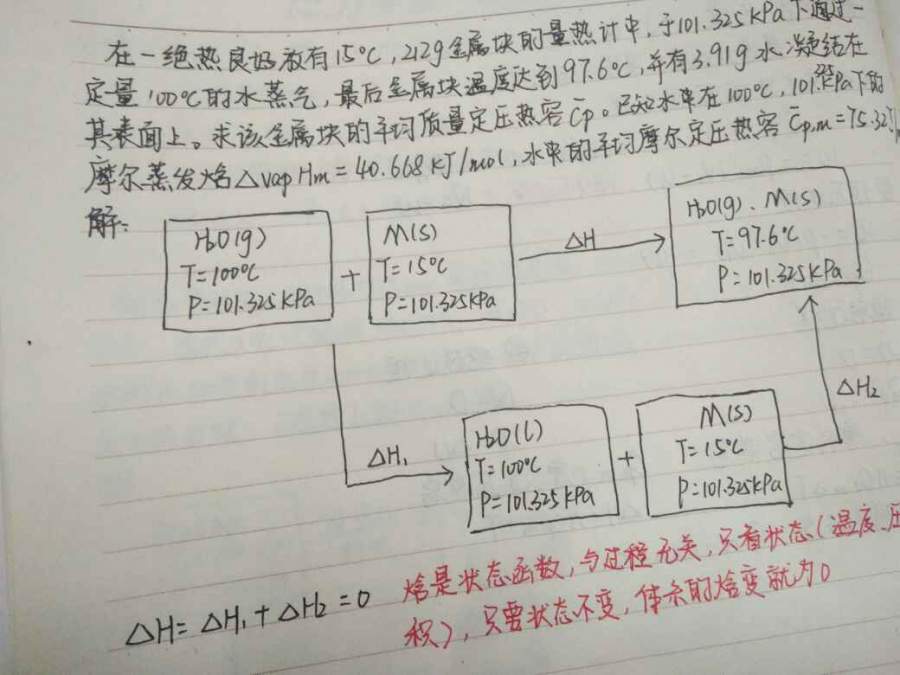 在一绝热良好放有15℃,212g金属块的量热计中,于101.325kPa下通过一
定量100℃的水蒸气,最后金属块温度达到97.6℃,并有3.91g水凝结在
其表面上。求该金属块的平均质量定压热容c̄p。已知水在100℃,101.325kPa下的
摩尔蒸发焓△vapHm=40.668kJ/mol,水的平均摩尔定压热容C̄p,m=75.32
解:
H2O(g)
T=100℃
P=101.325kPa
+
M(s)
T=15℃
P=101.325kPa
△H
H2O(g).M(s)
T=97.6℃
P=101.325kPa
△H1
H2O(l)
T=100℃
P=101.325kPa
+
M(s)
T=15℃
P=101.325kPa
△H2
△H=△H1+△H2=0
焓是状态函数,与过程无关,只看状态(温度、压
积),只要状态不变,体系的焓变就为0